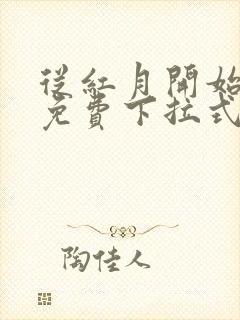 從紅月開始
免費下拉式
陶佳人